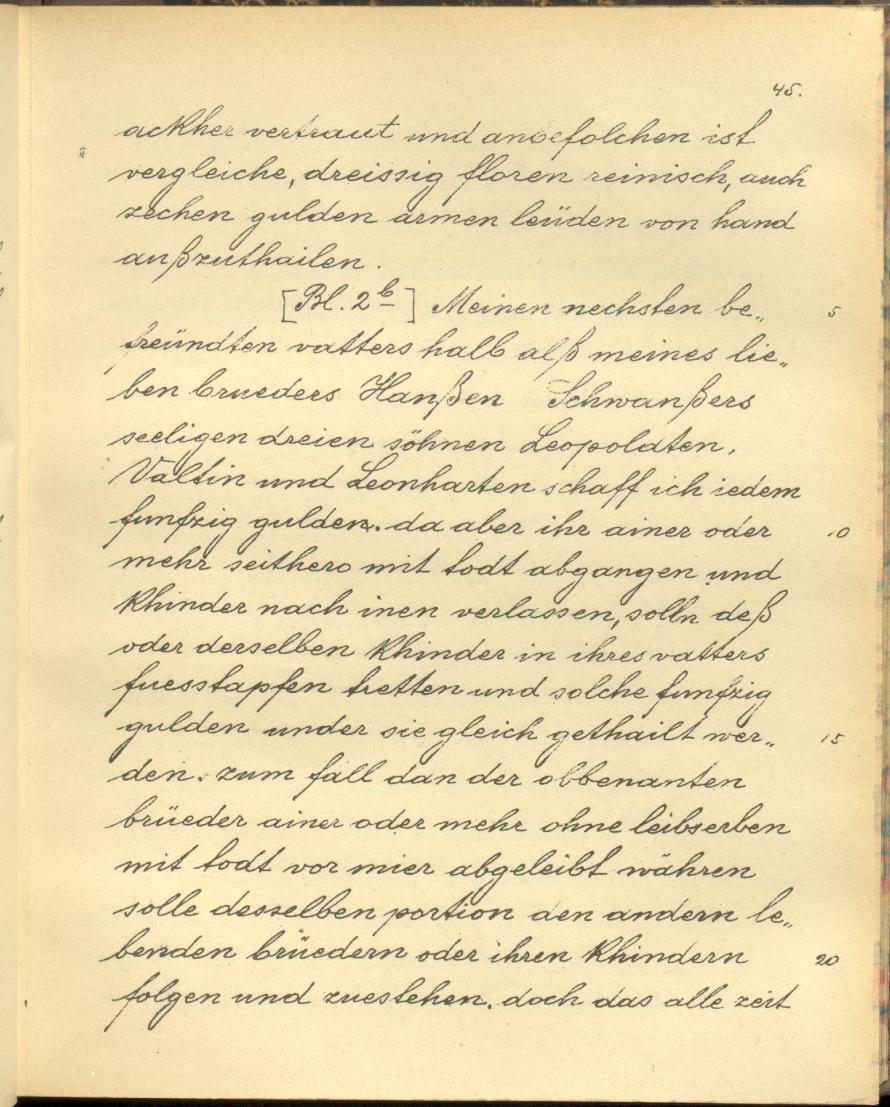 45.
ackher vertraut und anbefolchen ist
vergleiche, dreissig floren reinisch, auch
zechen gulden armen leüden von hand
außzuthailen.
[Bl. 2b] Meinen nechsten be„ 5
freündten vatters halb alß meines lie„
ben brueders Hanßen Schwanßers
seeligen dreien söhnen Leopoldten,
Valtin und Leonharten schaff ich iedem
funfzig gulden. da aber ihr ainer oder 10
mehr seithero mit todt abgangen und
Khinder nach inen verlassen, solln deß
oder derselben Khinder in ihres vatters
fuesstapfen tretten und solche funfzig
gulden under sie gleich gethailt wer„ 15
den. zum fall dan der obbenanten
brüeder ainer oder mehr ohne leibserben
mit todt vor mier abgeleibt währen
solle desselben portion den andern le„
benden brüedern oder ihren Khindern 20
folgen und zuestehen. doch das alle zeit